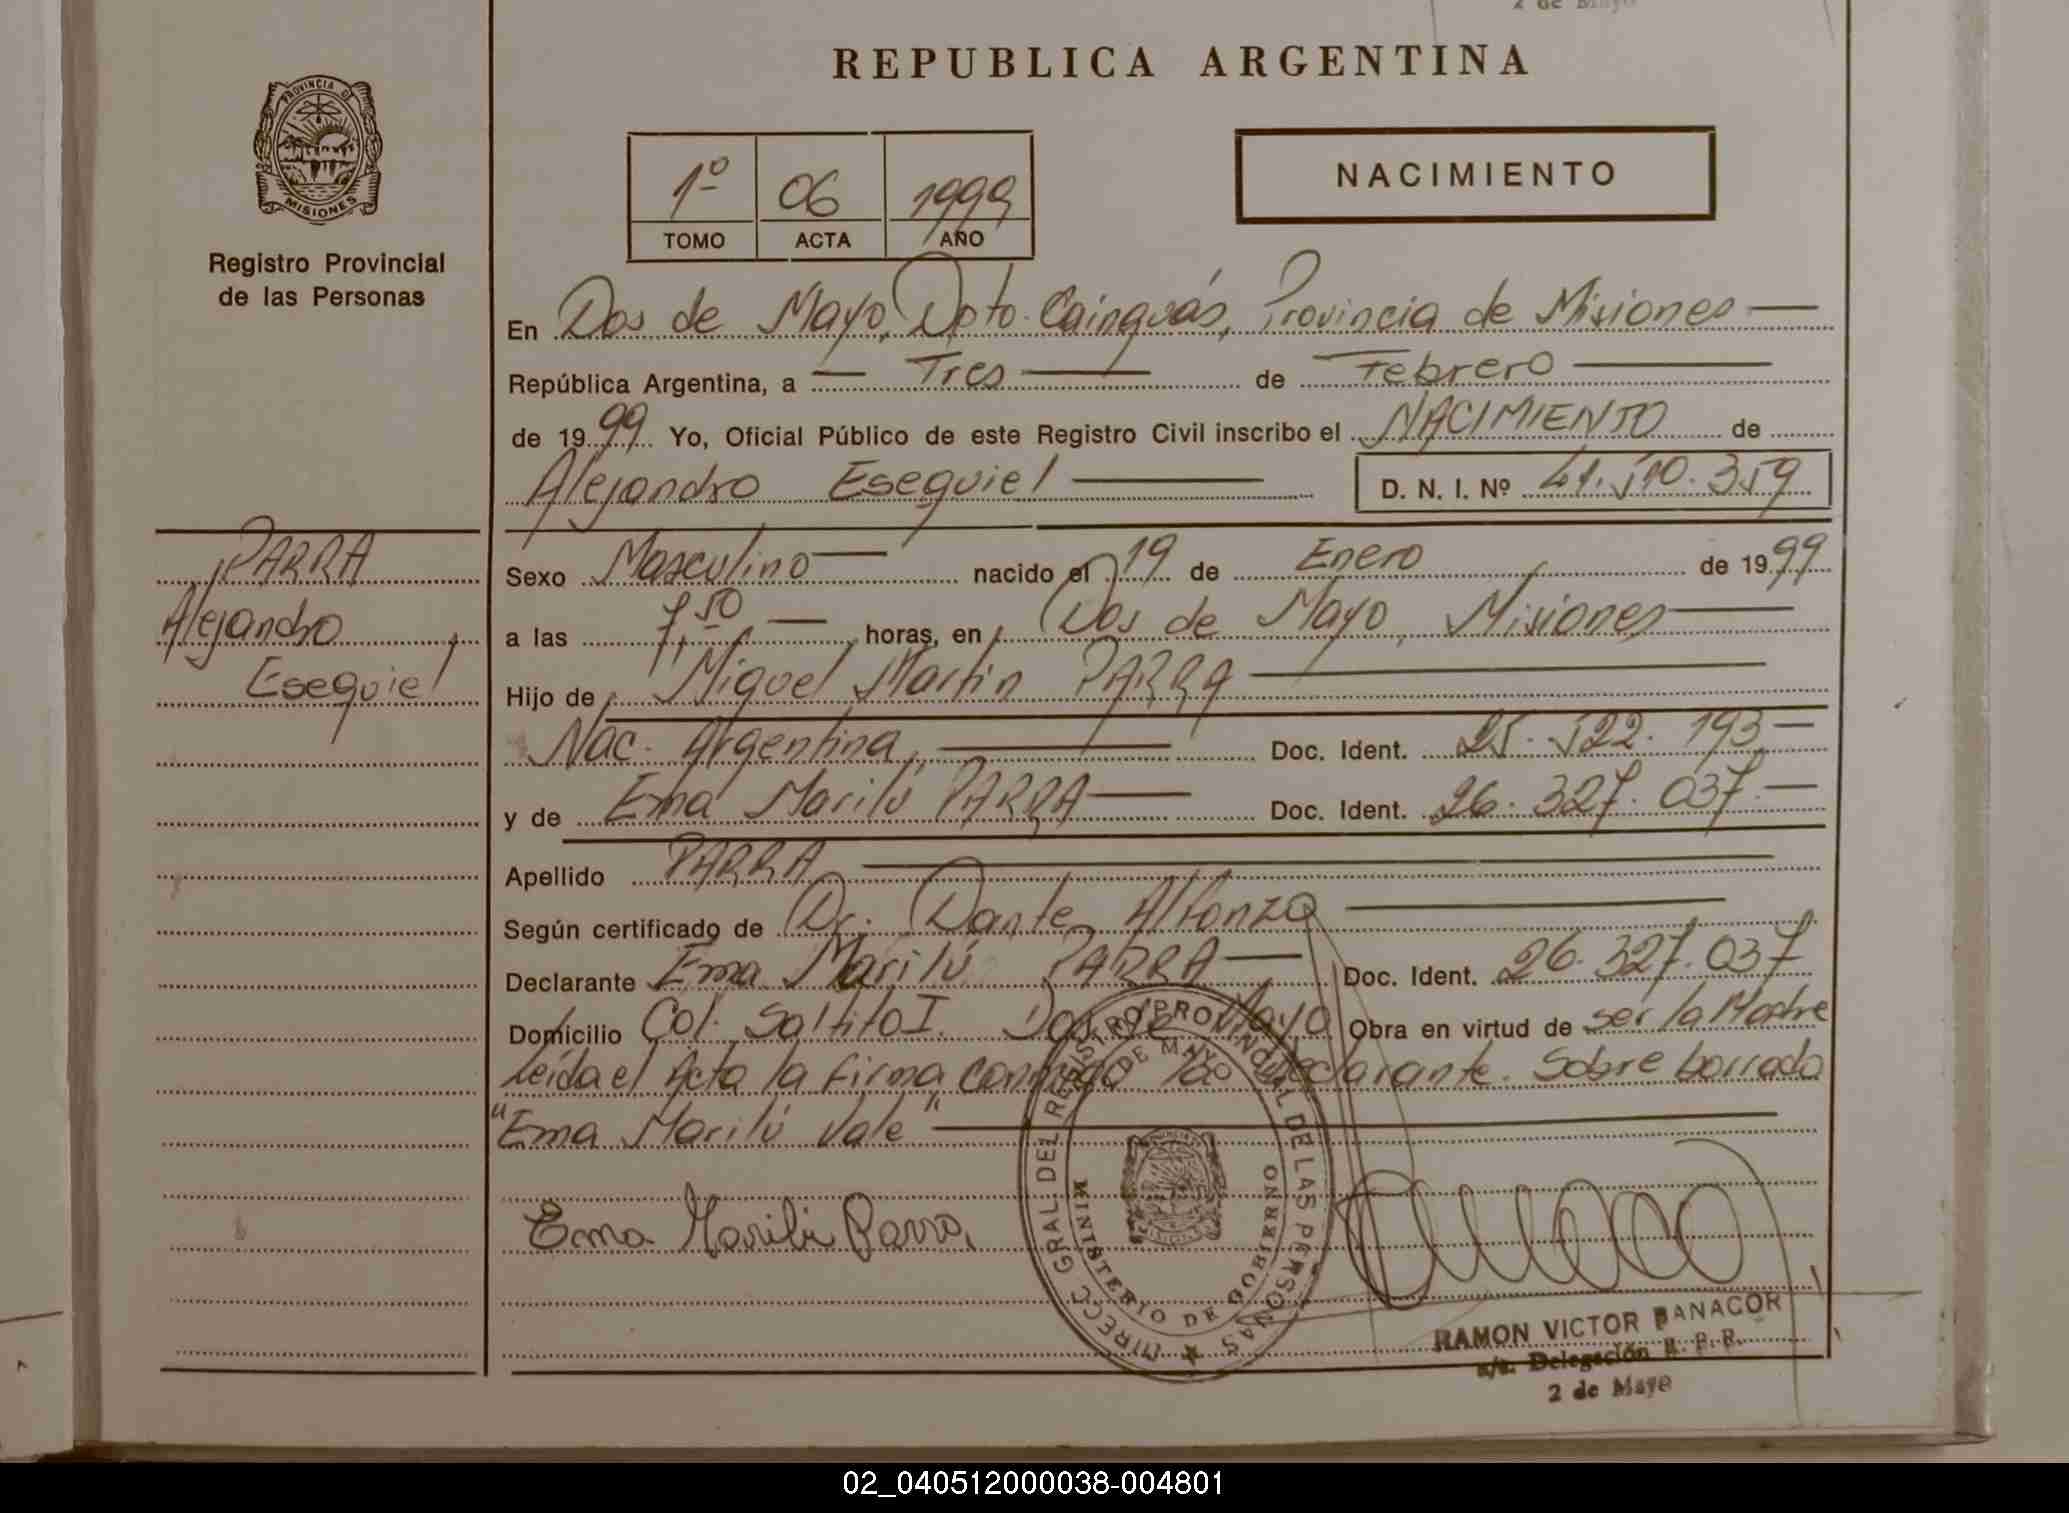 2 de Mayo
REPUBLICA ARGENTINA
PROVINCIA DE
MISIONES
Registro Provincial
de las Personas
1º 06 1999
TOMO ACTA AÑO
NACIMIENTO
En Dos de Mayo, Dpto. Cainguás, Provincia de Misiones —
República Argentina, a — Tres — de Febrero —
de 1999 Yo, Oficial Público de este Registro Civil inscribo el NACIMIENTO de
Alejandro Esequiel — D. N. I. Nº 41.510.359
PARRA
Alejandro
Esequiel
Sexo Masculino — nacido el 19 de Enero de 1999
a las 7,50 — horas, en Dos de Mayo, Misiones —
Hijo de Miguel Martin PARRA —
Nac. Argentina, — Doc. Ident. 25.522.193 —
y de Ema Marilú PARRA — Doc. Ident. 26.327.037. —
Apellido PARRA —
Según certificado de Dr. Dante Alfonzo —
Declarante Ema Marilú PARRA — Doc. Ident. 26.327.037
Domicilio Col. Saltito I. Dos de Mayo Obra en virtud de ser la Madre
Leída el Acta la firma conmigo la declarante. Sobre borrado
"Ema Marilú Vale" —
Ema Marilú Parra
DIRECC GRAL DEL REGISTRO PROVINCIAL DE LAS PERSONAS
2 DE MAYO
MINISTERIO DE GOBIERNO
RAMON VICTOR BANACOR
a/c. Delegación R. P. P.
2 de Mayo
02_040512000038-004801